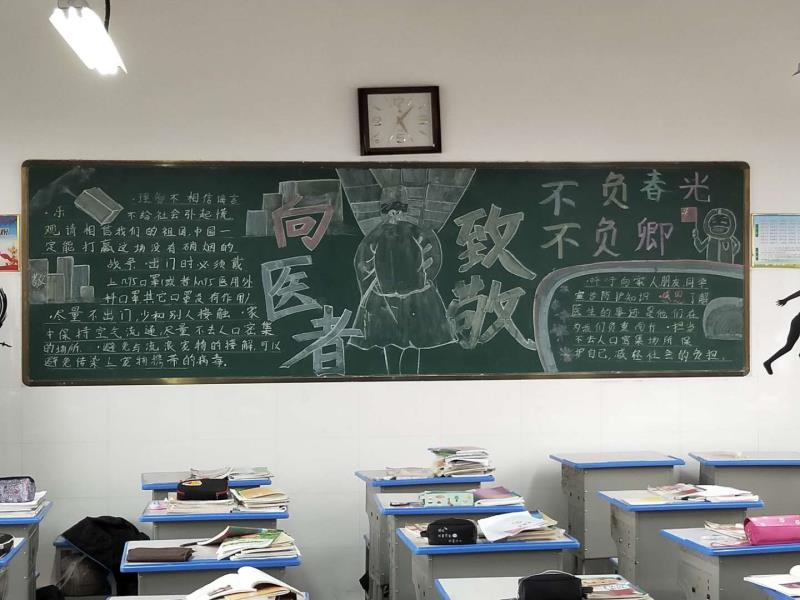 理智不相信谣言
·乐 不给社会引起慌
观请相信我们的祖国,中国一
定能打赢这场没有硝烟的
战争·出门时必须戴
上N95口罩或者N95医用外
科口罩其它口罩没有作用
·尽量不出门,少和别人接触·家
中保持空气流通,尽量不去人口密集
的场所 ·避免与流浪宠物的接触,可以
避免传染上宠物携带的病毒.
向
医
者
致
敬
不负春光
不负卿
·呼吁向家人朋友同学
宣告防护知识 了解
医生的事迹是他们在
为我们负重前行·担当
不去人口密集场所保
护自己,减轻社会的负担.